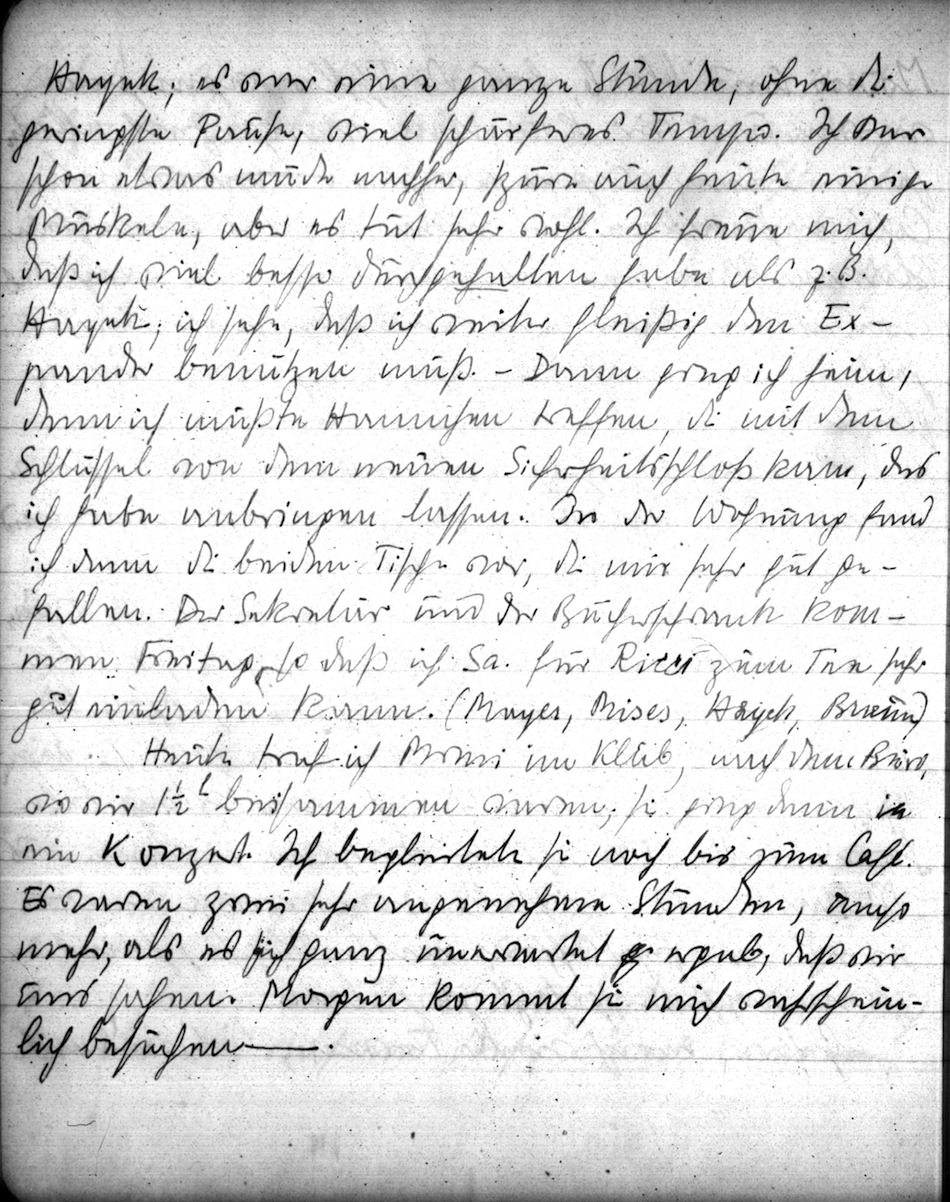 Hayek; es war eine ganze Stunde, ohne die
geringste Pause, viel schärferes Tempo. Ich war
schon etwas müde nachher, spüre auch heute einige
Muskeln, aber es tut sehr wohl. Ich freue mich,
daß ich viel besser durchgehalten habe als z.B.
Hayek; ich sehe, daß ich weiter fleißig den Ex-
pander benützen muß. – Dann ging ich heim,
denn ich mußte Hannchen treffen, die mit dem
Schlüssel von dem neuen Sicherheitsschloß kam, das
ich habe anbringen lassen. In der Wohnung fand
ich dann die beiden Tische vor, die mir sehr gut ge-
fallen. Der Sekretär und der Bücherschrank kom-
men Freitag, so daß ich Sa. für Ricci zum Tee sehr
gut einladen kann. (Mayer, Mises, Hayek, Braun)
Heute traf ich Mimi im Klub, nach dem Büro,
wo wir 1½ h beisammen waren; sie ging dann in
ein Konzert. Ich begleitete sie noch bis zum Café.
Es waren zwei sehr angenehme Stunden, umso
mehr, als es sich ganz unerwartet ergab, daß wir
uns sahen. Morgen kommt sie mich wahrschein-
lich besuchen –.